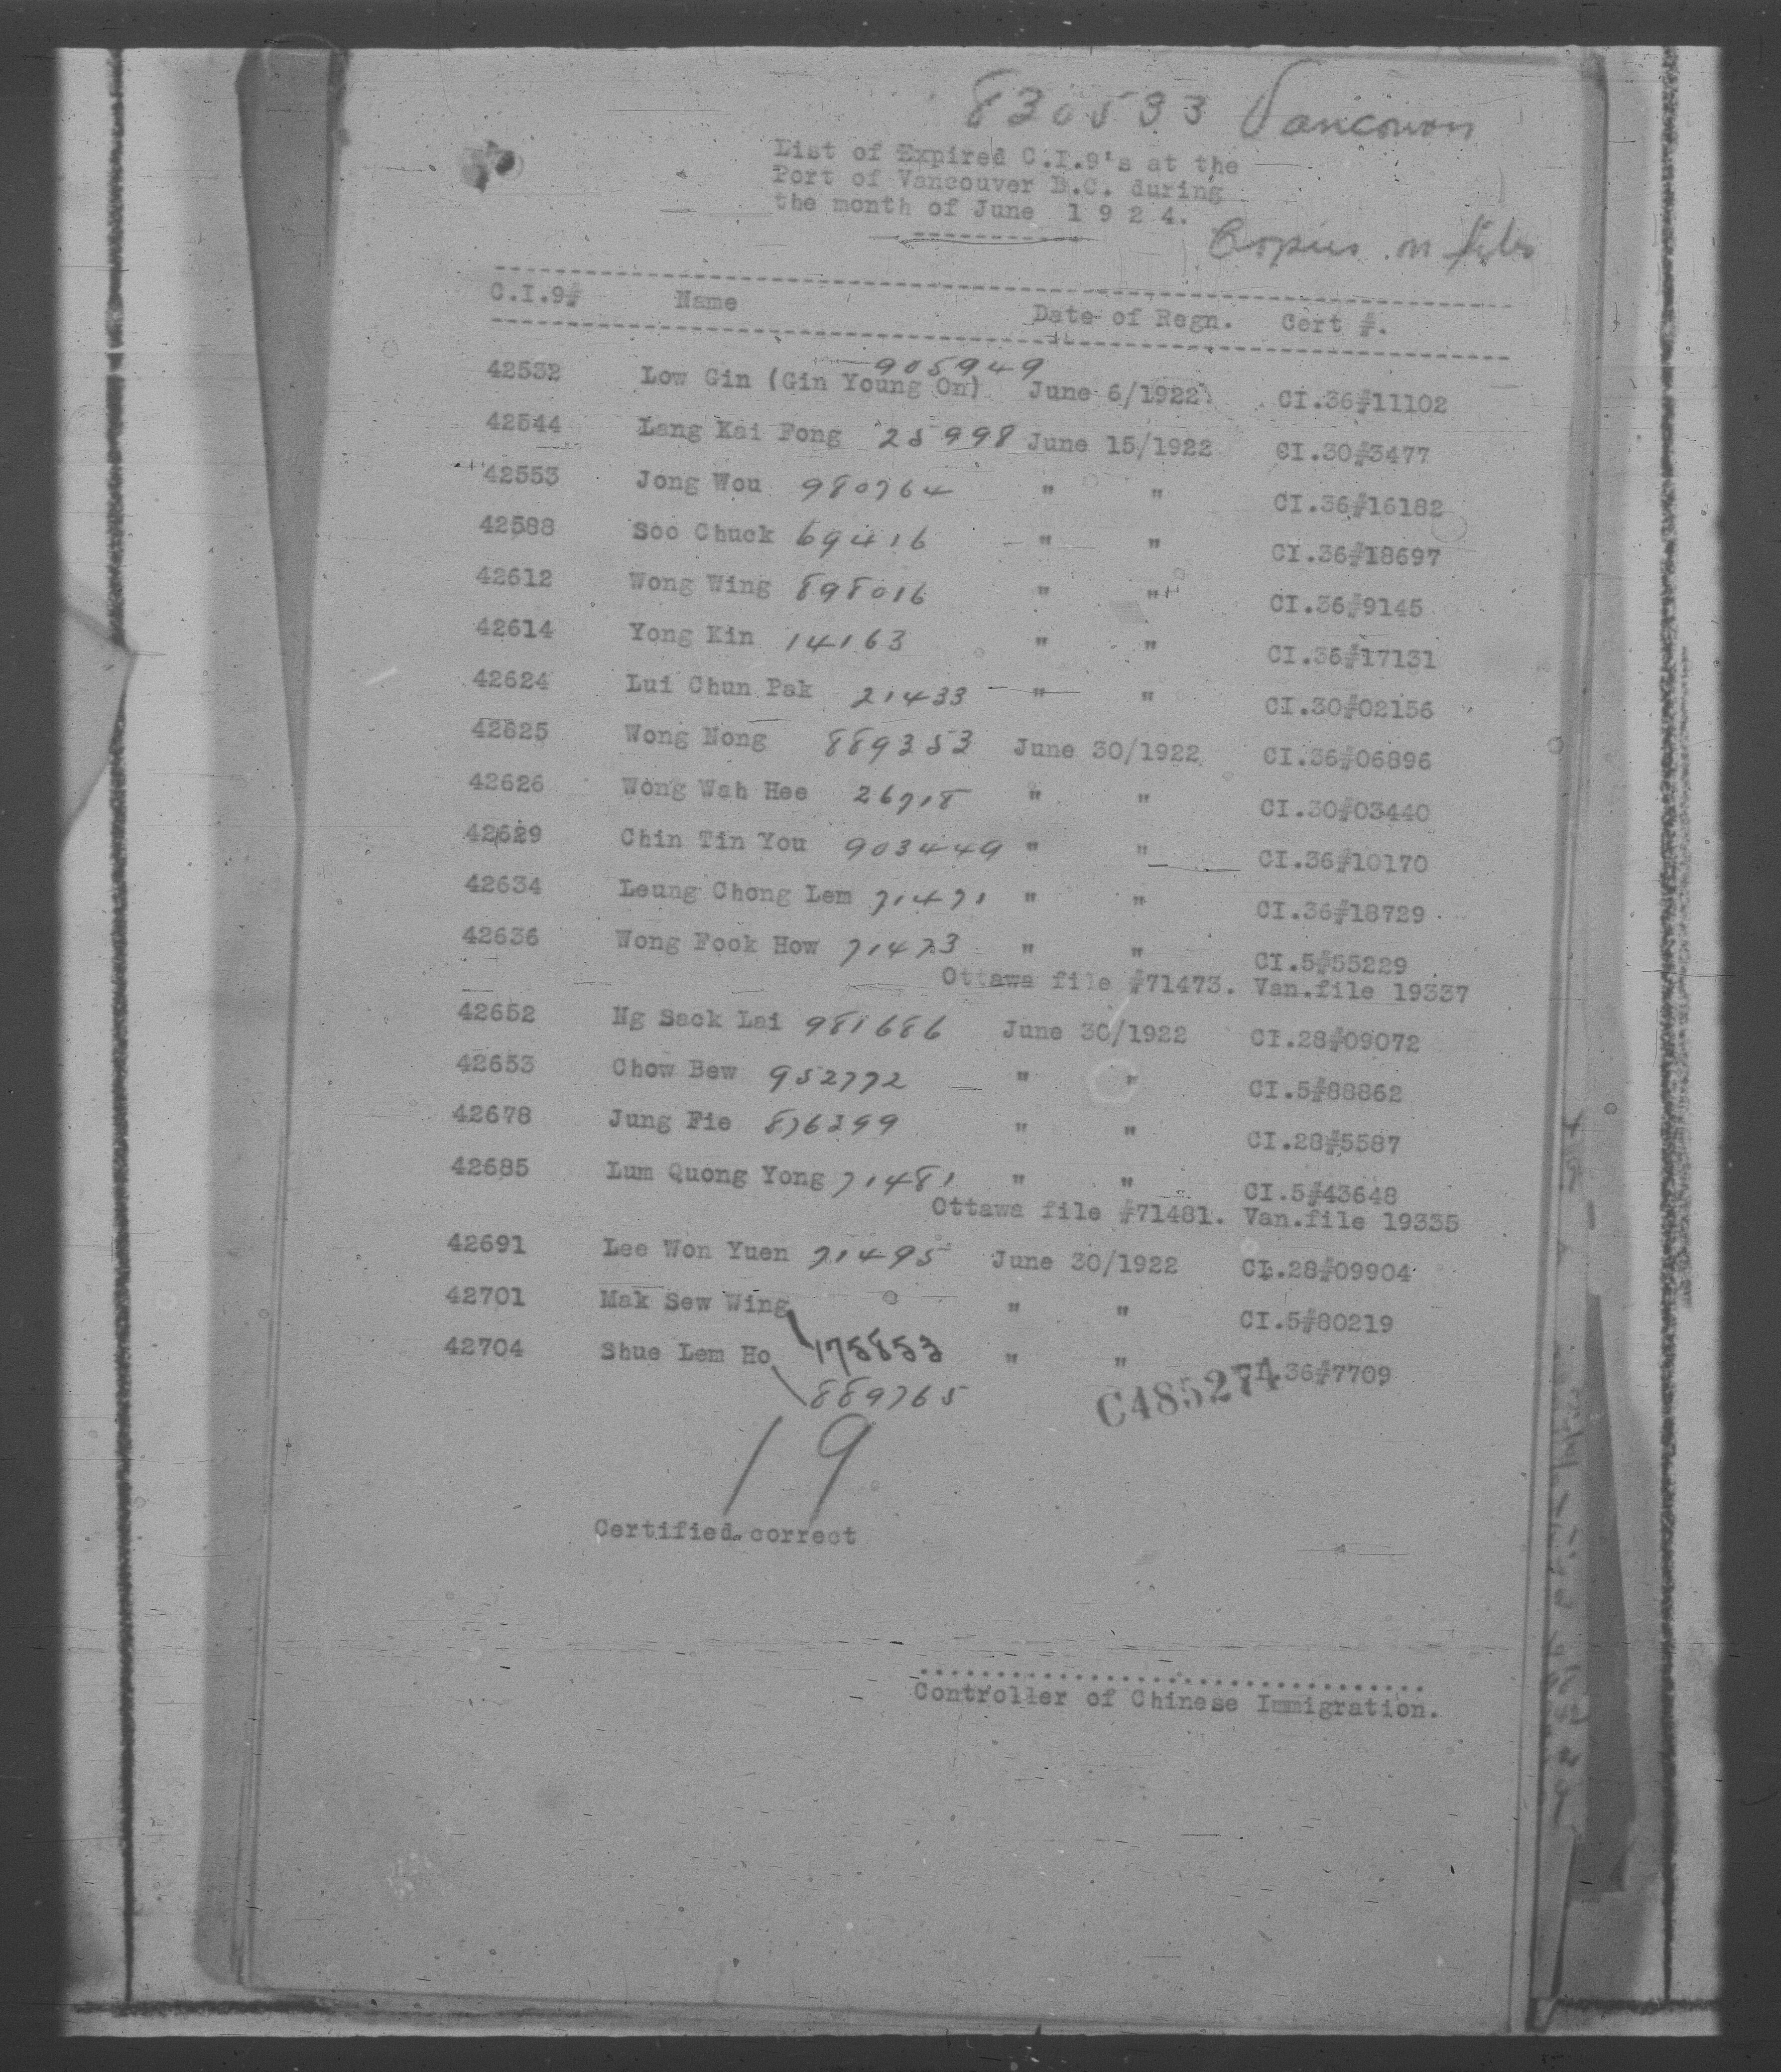 830533 Vancouver
List of Expired C.I.9's at the
Port of Vancouver B.C. during
the month of June 1 9 2 4.
Copies on files
C.I.9# Name Date of Regn. Cert #.
905949
42532 Low Gin (Gin Young On) June 6/1922 CI.36#11102
42544 Lang Kai Fong 25998 June 15/1922 CI.30#3477
42553 Jong Wou 980764 " " CI.36#16182
42588 Soo Chuck 69416 " " CI.36#18697
42612 Wong Wing 898016 " " CI.36#9145
42614 Yong Kin 14163 " " CI.36#17131
42624 Lui Chun Pak 21433 " " CI.30#02156
42625 Wong Nong 889353 June 30/1922 CI.36#06896
42626 Wong Wah Hee 26718 " " CI.30#03440
42629 Chin Tin You 903449 " " CI.36#10170
42634 Leung Chong Lem 71471 " " CI.36#18729
42636 Wong Fook How 71473 " " CI.5#55229
Ottawa file #71473. Van.file 19337
42652 Ng Sack Lai 981686 June 30/1922 CI.28#09072
42653 Chow Bew 952772 " " CI.5#88862
42678 Jung Fie 876399 " " CI.28#5587
42685 Lum Quong Yong 71481 " " CI.5#43648
Ottawa file #71481. Van.file 19335
42691 Lee Won Yuen 71495 June 30/1922 CI.28#09904
42701 Mak Sew Wing " " CI.5#80219
42704 Shue Lem Ho 175853 " " CI.36#7709
889765 C485274
19
Certified correct
Controller of Chinese Immigration.